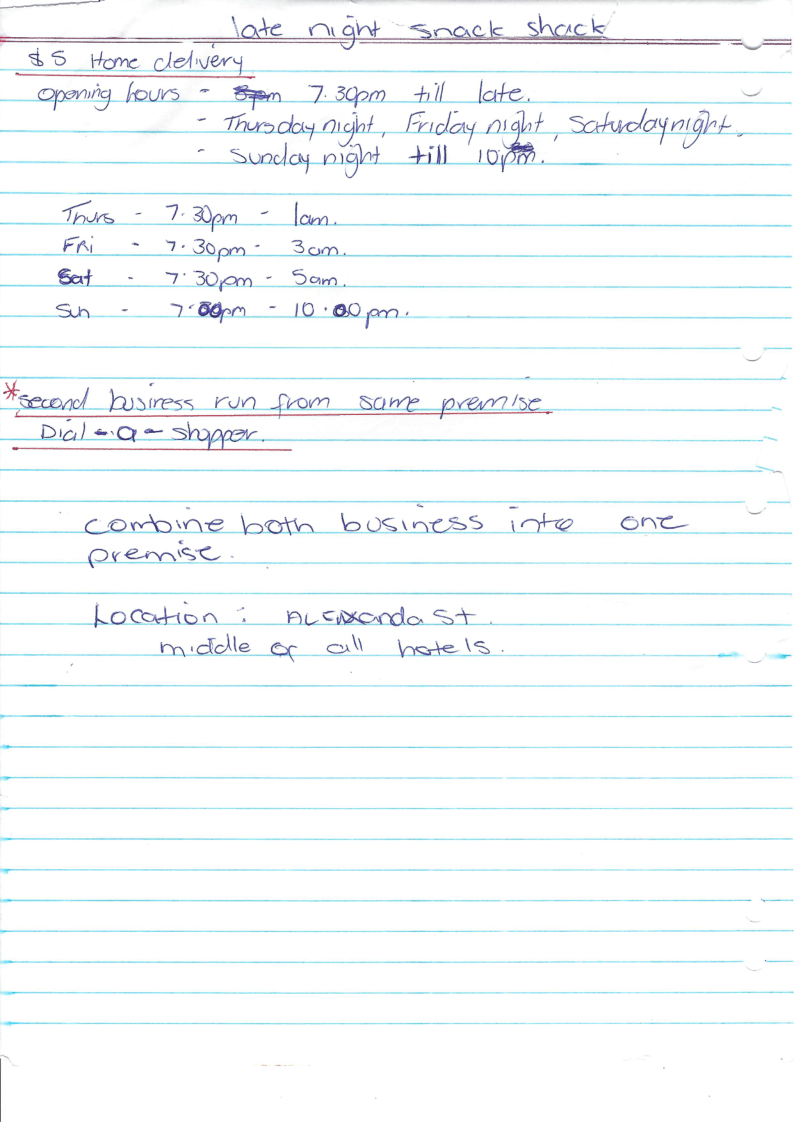 late night snack shack
$5 Home delivery
opening hours - 7.30pm till late.
- Thursday night, Friday night, Saturday night.
- Sunday night till 10pm.
Thurs - 7.30pm - 1am.
FRi - 7.30pm - 3am.
Sat - 7.30pm - 5am.
Sun - 7.00pm - 10.00pm.
*second business run from same premise
Dial - a - shopper.
combine both business into one
premise.
Location : ALEXanda St.
middle of all hotels.